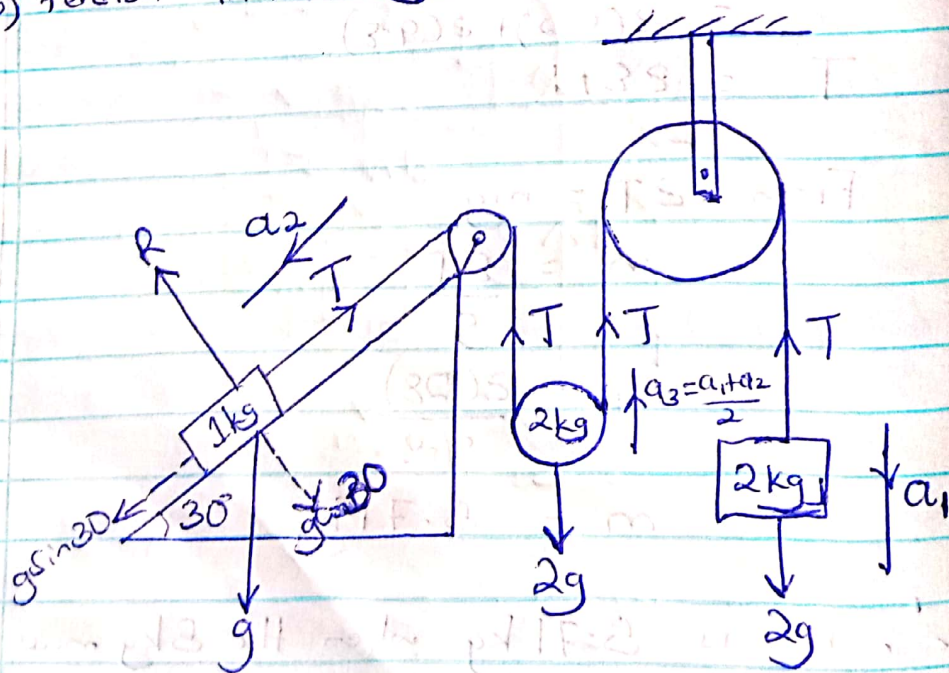 R
a2
T
T
T
T
a3 = a1+a2
2
1kg
2kg
2kg
a1
gsin30
30°
gcos30
g
2g
2g